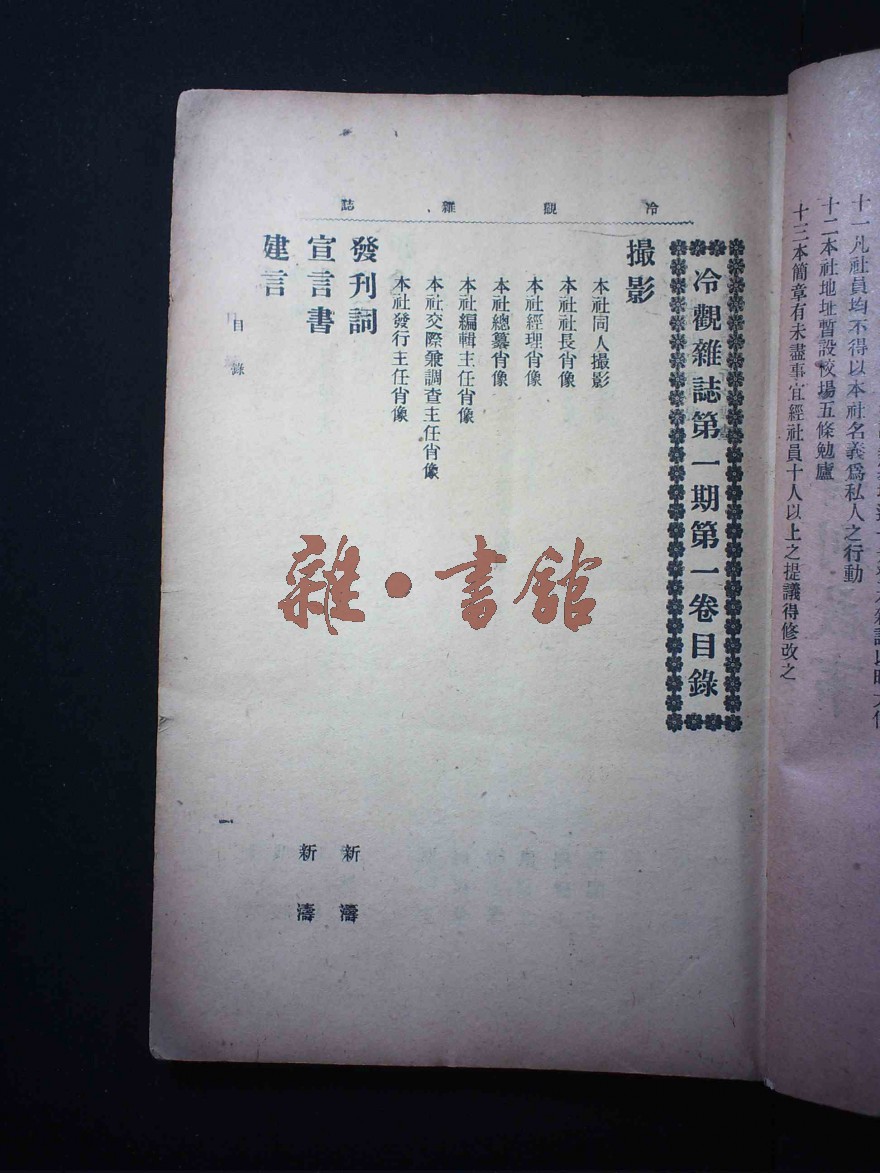 十一凡社員均不得以本社名義爲私人之行動
十二本社地址暫設校場五條勉廬
十三本簡章有未盡事宜經社員十人以上之提議得修改之
冷觀雜誌
冷觀雜誌第一期第一卷目錄
撮影
本社同人撮影
本社社長肖像
本社經理肖像
本社總纂肖像
本社編輯主任肖像
本社交際兼調查主任肖像
本社發行主任肖像
發刊詞 新濤
宣言書 新濤
建言
目錄
一
雜·書館